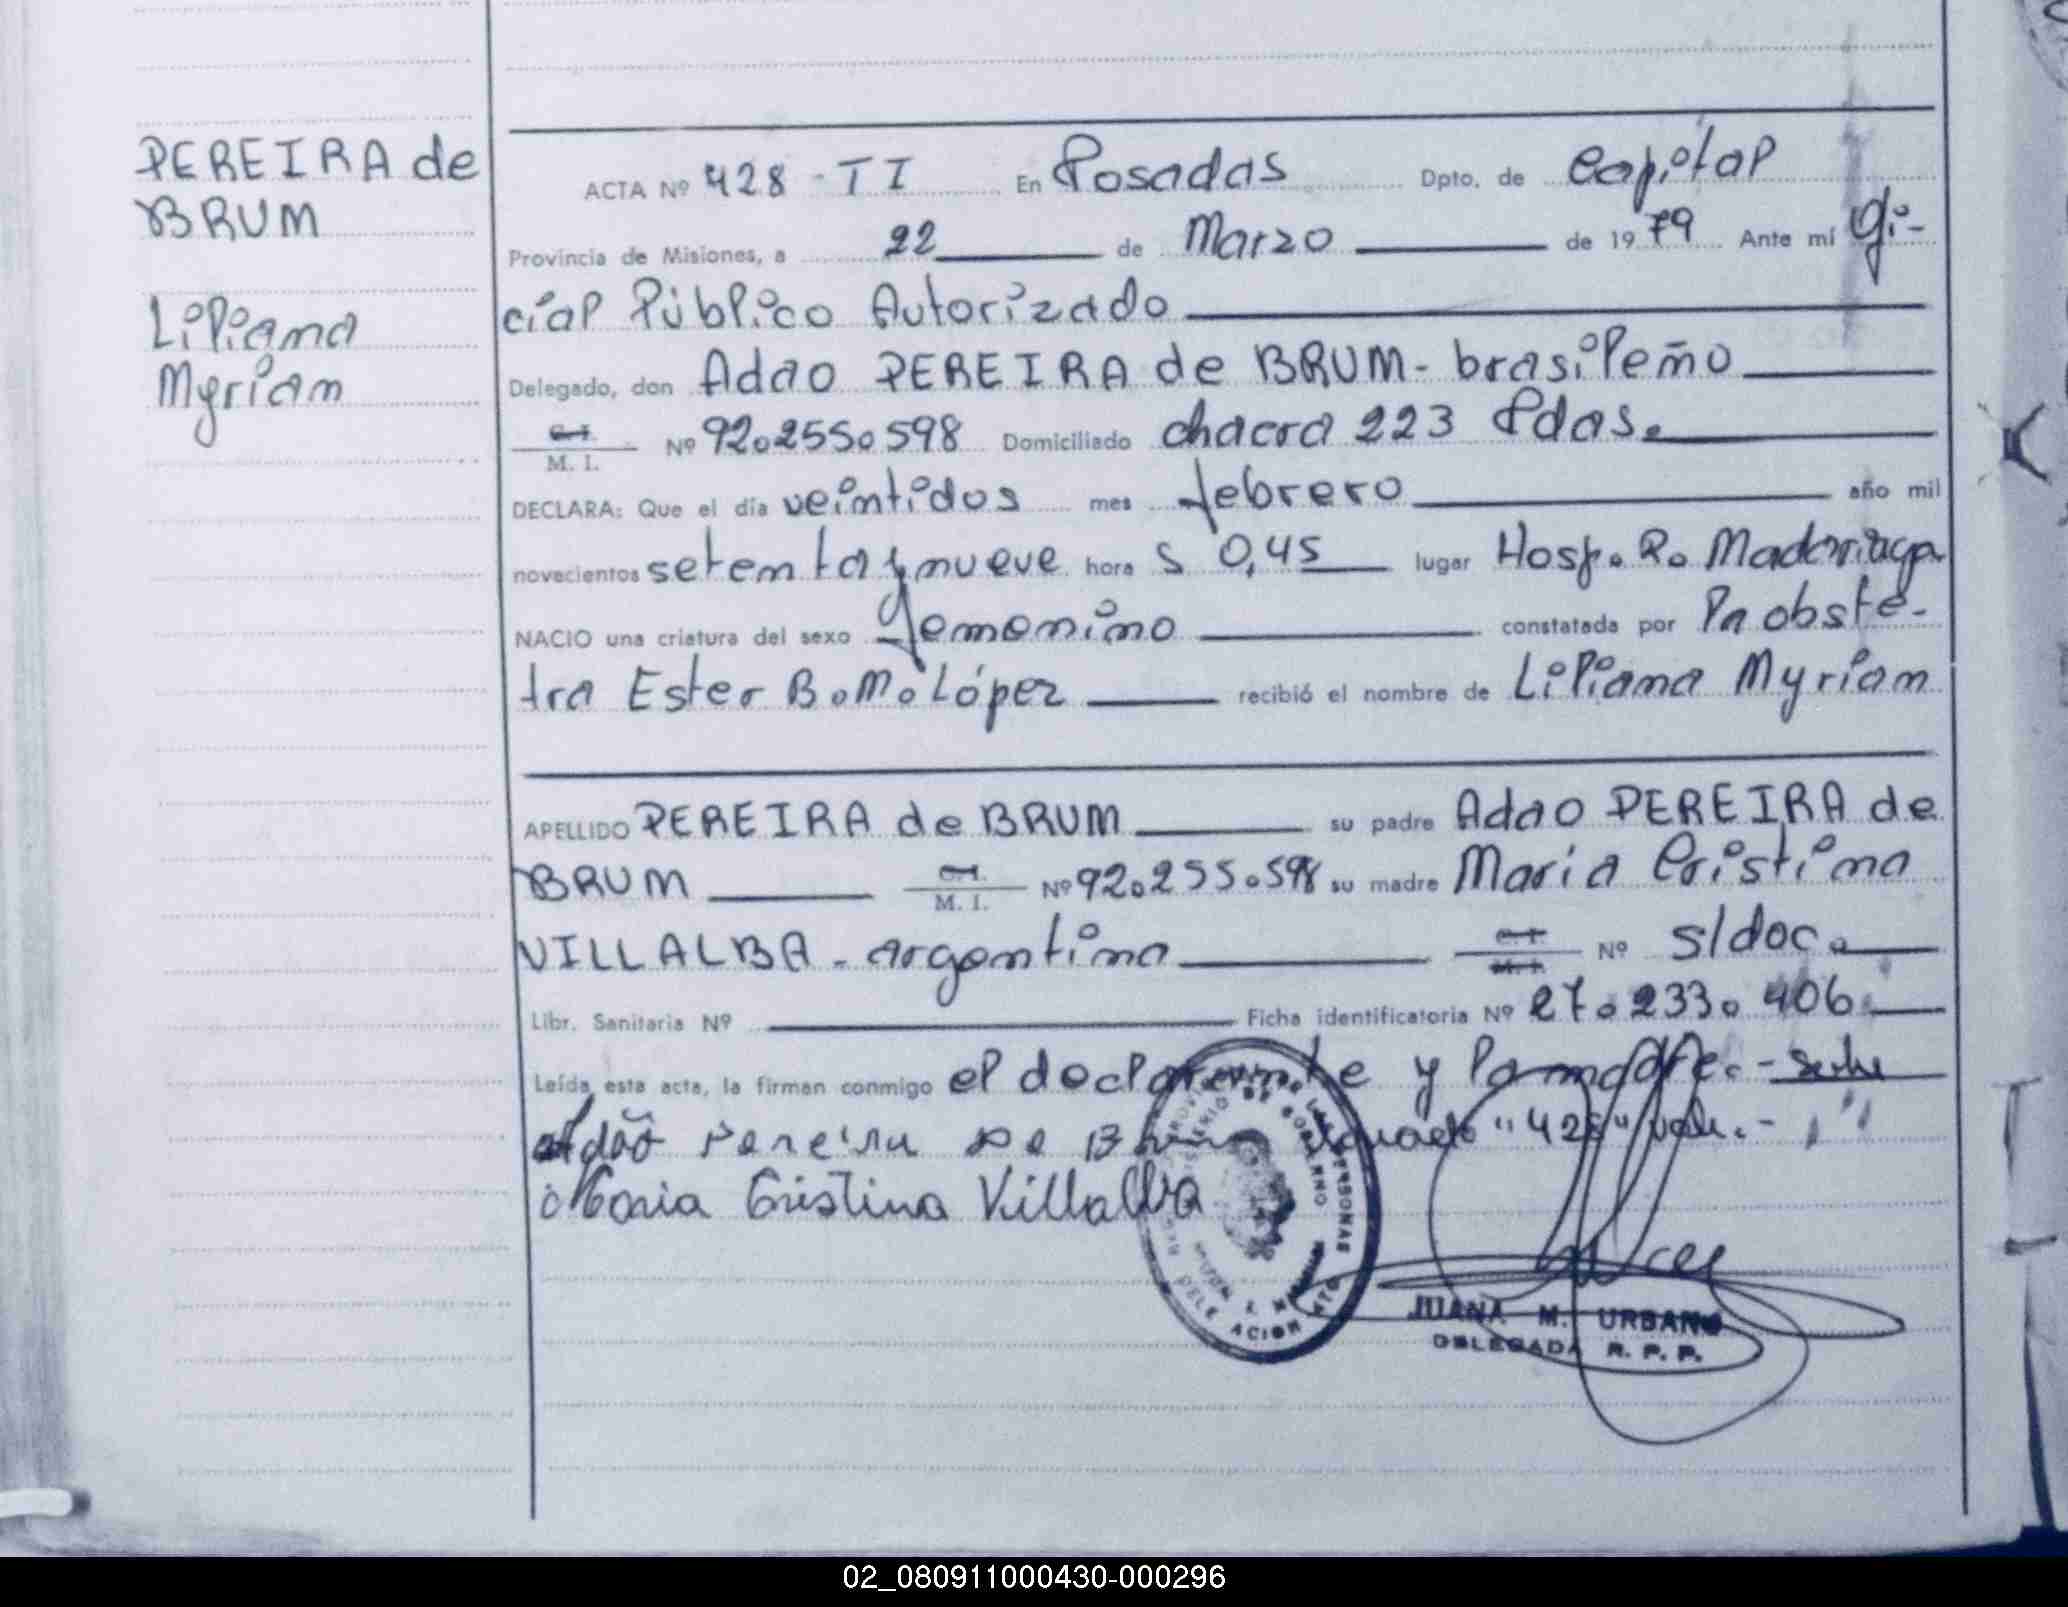 PEREIRA de
BRUM
Liliana
Myriam
ACTA Nº 428 - TI En Posadas Dpto. de Capital
Provincia de Misiones, a 22 de Marzo de 1979 Ante mí Ofi-
cial Público Autorizado
Delegado, don Adao PEREIRA de BRUM - brasileño
C.I. M. I. Nº 92.255.598 Domiciliado chacra 223 Pdas.
DECLARA: Que el día veintidos mes febrero año mil
novecientos setenta y nueve hora s 0,45 lugar Hosp. R. Madariaga
NACIO una criatura del sexo femenino constatada por la obste-
tra Ester B. M. López recibió el nombre de Liliana Myriam
APELLIDO PEREIRA de BRUM su padre Adao PEREIRA de
BRUM C.I. M. I. Nº 92.255.598 su madre Maria Cristina
VILLALBA - argentina C.I. M.I. Nº s/doc.
Libr. Sanitaria Nº Ficha identificatoria Nº 27.233.406
Leída esta acta, la firman conmigo el declarante y la madre.-
Adão Pereira de Brum "428" vale.-
Maria Cristina Villalba
DE LAS PERSONAS
DE GOBIERNO
DELEGACION
JUANA M. URBANO
DELEGADA R. P. P.
02_080911000430-000296